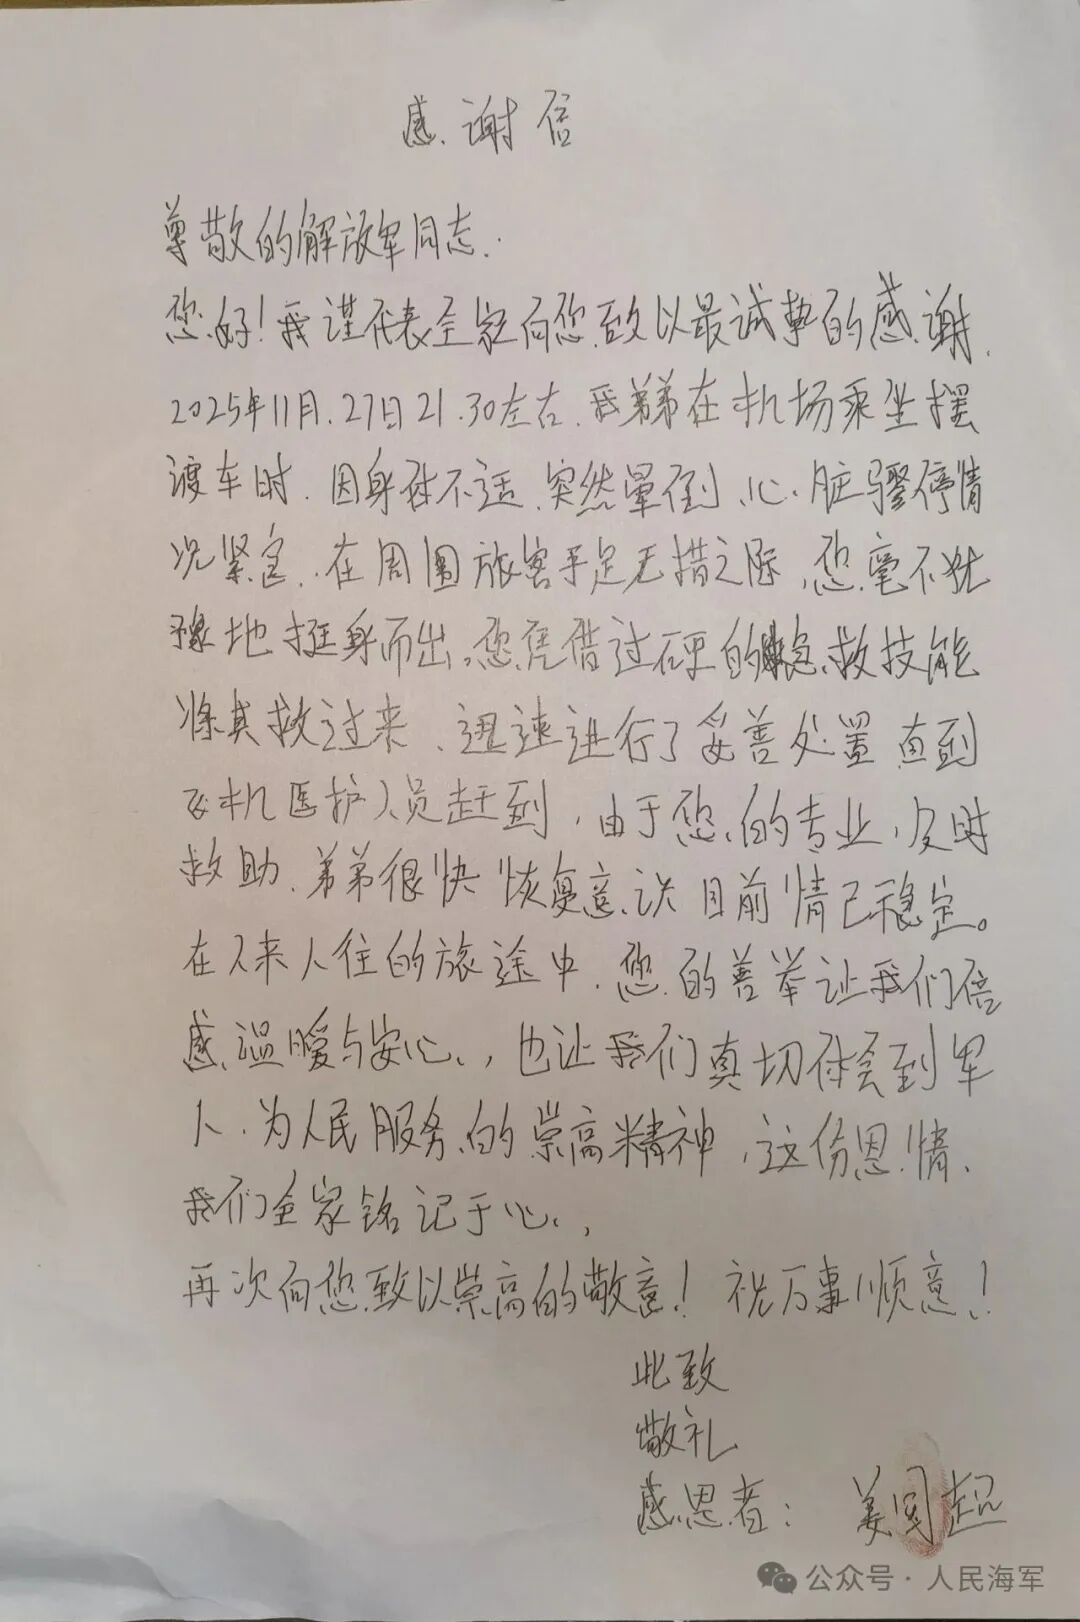 感谢信
尊敬的解放军同志.
您好!我谨代表全家向您致以最诚挚的感谢.
2025年11月.27日21.30左右.我弟弟在机场乘坐摆
渡车时.因身体不适.突然晕倒、心脏骤停情
况紧急..在周围旅客手足无措之际,您毫不犹
豫地挺身而出。您凭借过硬的急救技能
将其救过来、迅速进行了妥善处置 直到
飞机医护人员赶到,由于您的专业,及时
救助.弟弟很快恢复意识 目前情已稳定。
在人来人往的旅途中.您的善举让我们倍
感温暖与安心,也让我们真切体会到军
人.为人民服务的崇高精神,这份恩情、
我们全家铭记于心,
再次向您致以崇高的敬意!祝万事顺意!
此致
敬礼
感恩者:姜国超
公众号·人民海军